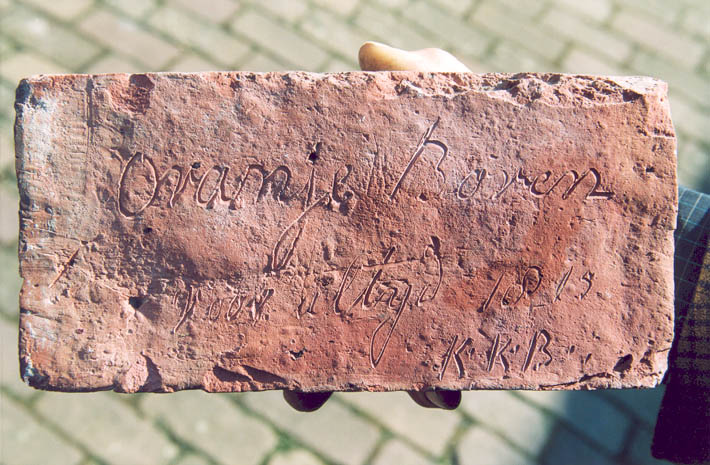 Oranje Boven
voor altyd 1813.
K.K.B.